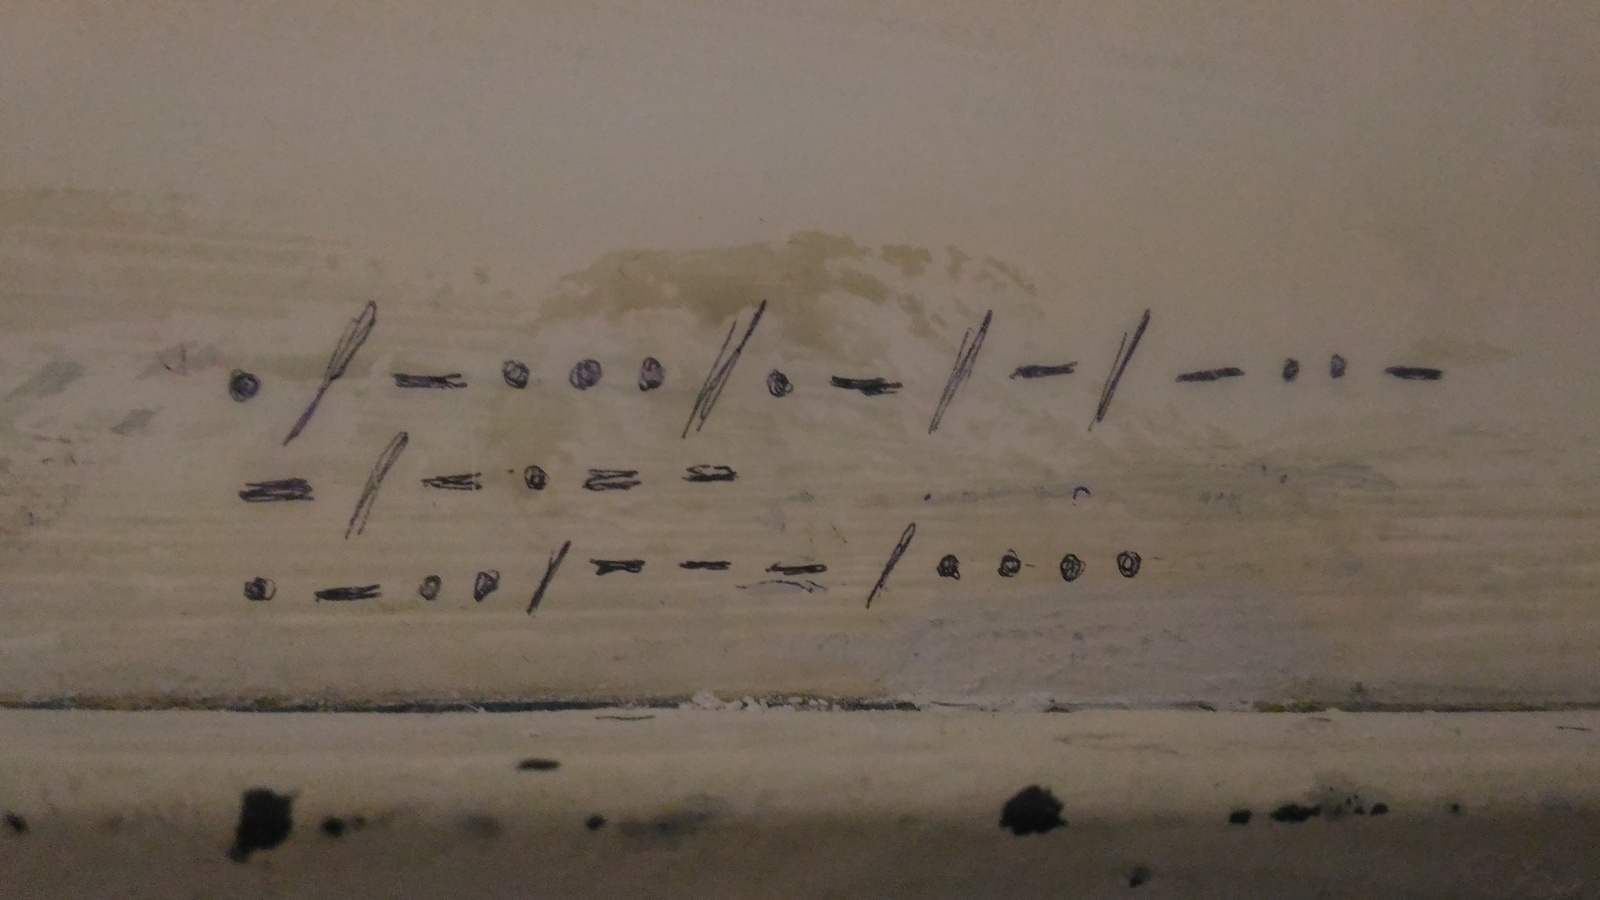 • / — • • • / • — / — / — • • —
— / — • — —
• — • • / — — — / • • • •